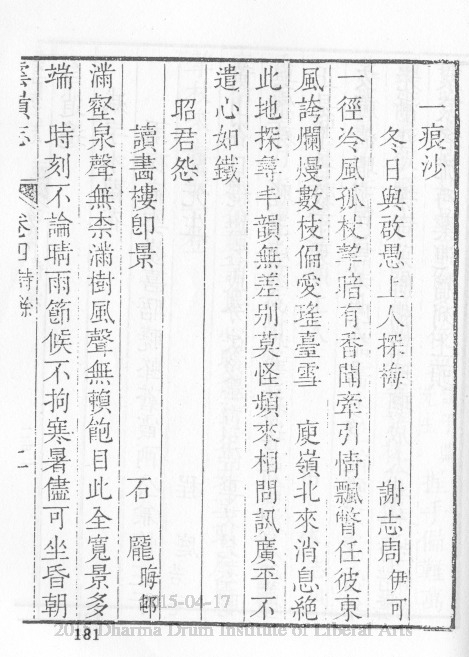 一痕沙
冬日與啟愚上人探梅 謝志周伊可
一徑冷風孤杖撃暗有香聞牽引情飄瞥任彼東
風誇爛熳數枝偏愛瑤臺雪 庾嶺北來消息絶
此地探尋丰韻無差别莫怪頻來相問訊廣平不
遣心如鐵
昭君怨
讀畵樓卽景 石龎晦邨
滿壑泉聲無柰滿樹風聲無頼飽目此全寬景多
端 時刻不論晴雨節候不拘寒暑儘可坐昏朝
雲嶺志 卷四詩餘 二
181
2015-04-17
Dharma Drum Institute of Liberal Arts